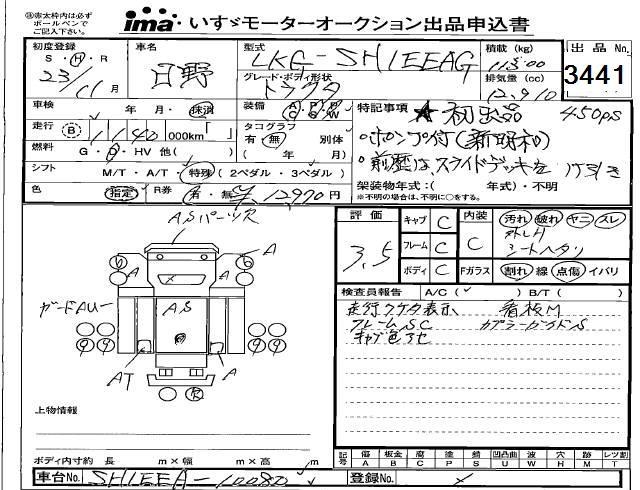 ㊟赤太枠内は必ず
ボールペンで
ご記入ください。
ima いすゞモーターオークション出品申込書
初度登録
S・H・R
23/11月
車名
日野
型式
LKG-SH1EEAG
グレード・ボディ形状
トラクタ
積載(kg)
11300
排気量(cc)
12,910
出品No.
3441
車検
年 月・抹消
装備
走行(B)1140 000km「 」
タコグラフ
有・無 別体
( 年 月)
燃料
G・ ・HV 他( )
シフト M/T・A/T・特殊(2ペダル・3ペダル)
色 指定 R券 有・無 12,970円
特記事項 ★初出品 450ps
・ポンプ付(新明和)
・前歴は、スライドデッキを
架装物年式:( 年式)・不明
※不明の場合は、不明に○をする。
評価
3.5
キャブ C
フレーム C
ボディ C
内装 C
Fガラス C
汚れ 破れ ヤニ スレ
シートヘタリ
割れ 線 点傷 イバリ
検査員報告 A/C( ) B/T( )
走行 表示 看板M
フレームSC カプラーガードS
キャブ色アセ
ASパーツX
A
A
A
AS
ガードAU
AT
A
A
上物情報
ボディ内寸約 長 m×幅 m×高 m
記号 傷 A 板金 B 腐 C 塗 P 錆 S 凹凸曲 U 波 W 穴 H 跡 M レツ割 T
車台No. SH1EEA-10080
登録No.